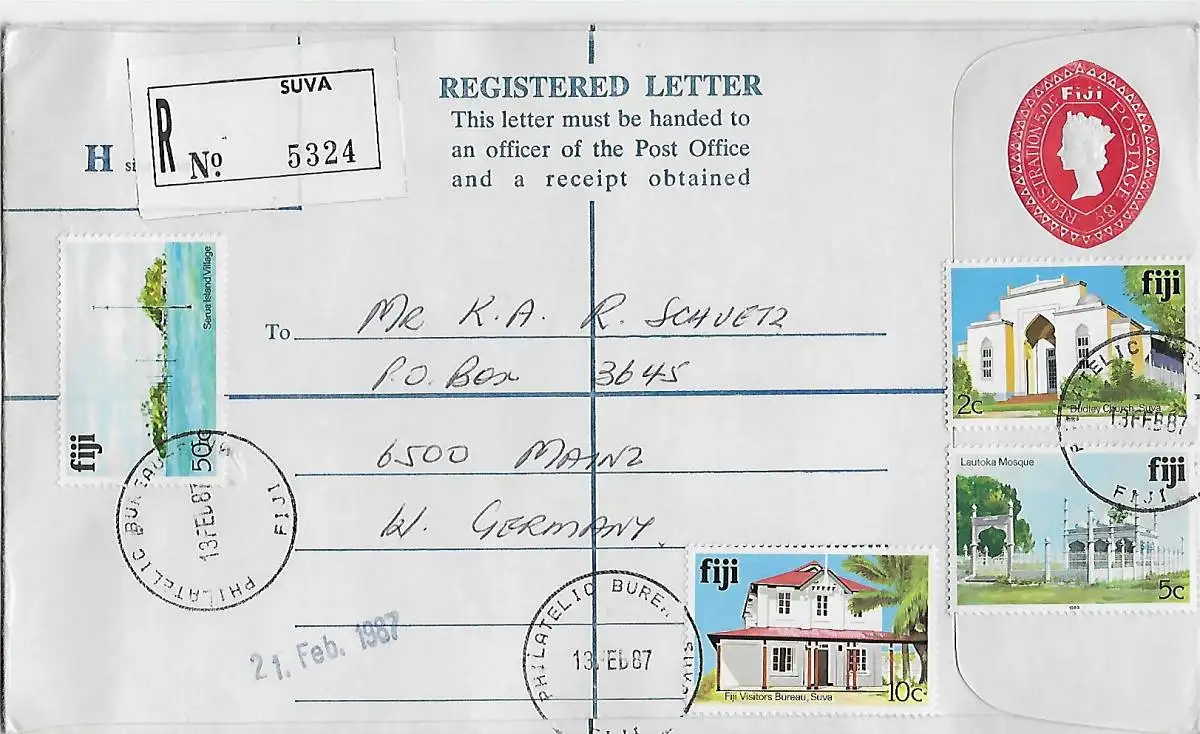 SUVA
R No 5324
H
REGISTERED LETTER
This letter must be handed to
an officer of the Post Office
and a receipt obtained
FIJI
REGISTRATION 50c POSTAGE 8c
Serua Island Village
fiji
50c
PHILATELIC BUREAU
13 FEB 87
FIJI
To
MR K.A. R. SCHUETZ
P.O. BOX 3645
6500 MAINZ
W. GERMANY
fiji
2c
Dudley Church, Suva
13 FEB 87
FIJI
Lautoka Mosque
fiji
5c
fiji
Fiji Visitors Bureau, Suva
10c
PHILATELIC BUREA
SUVA
13 FEB 87
FIJI
21. Feb. 1987